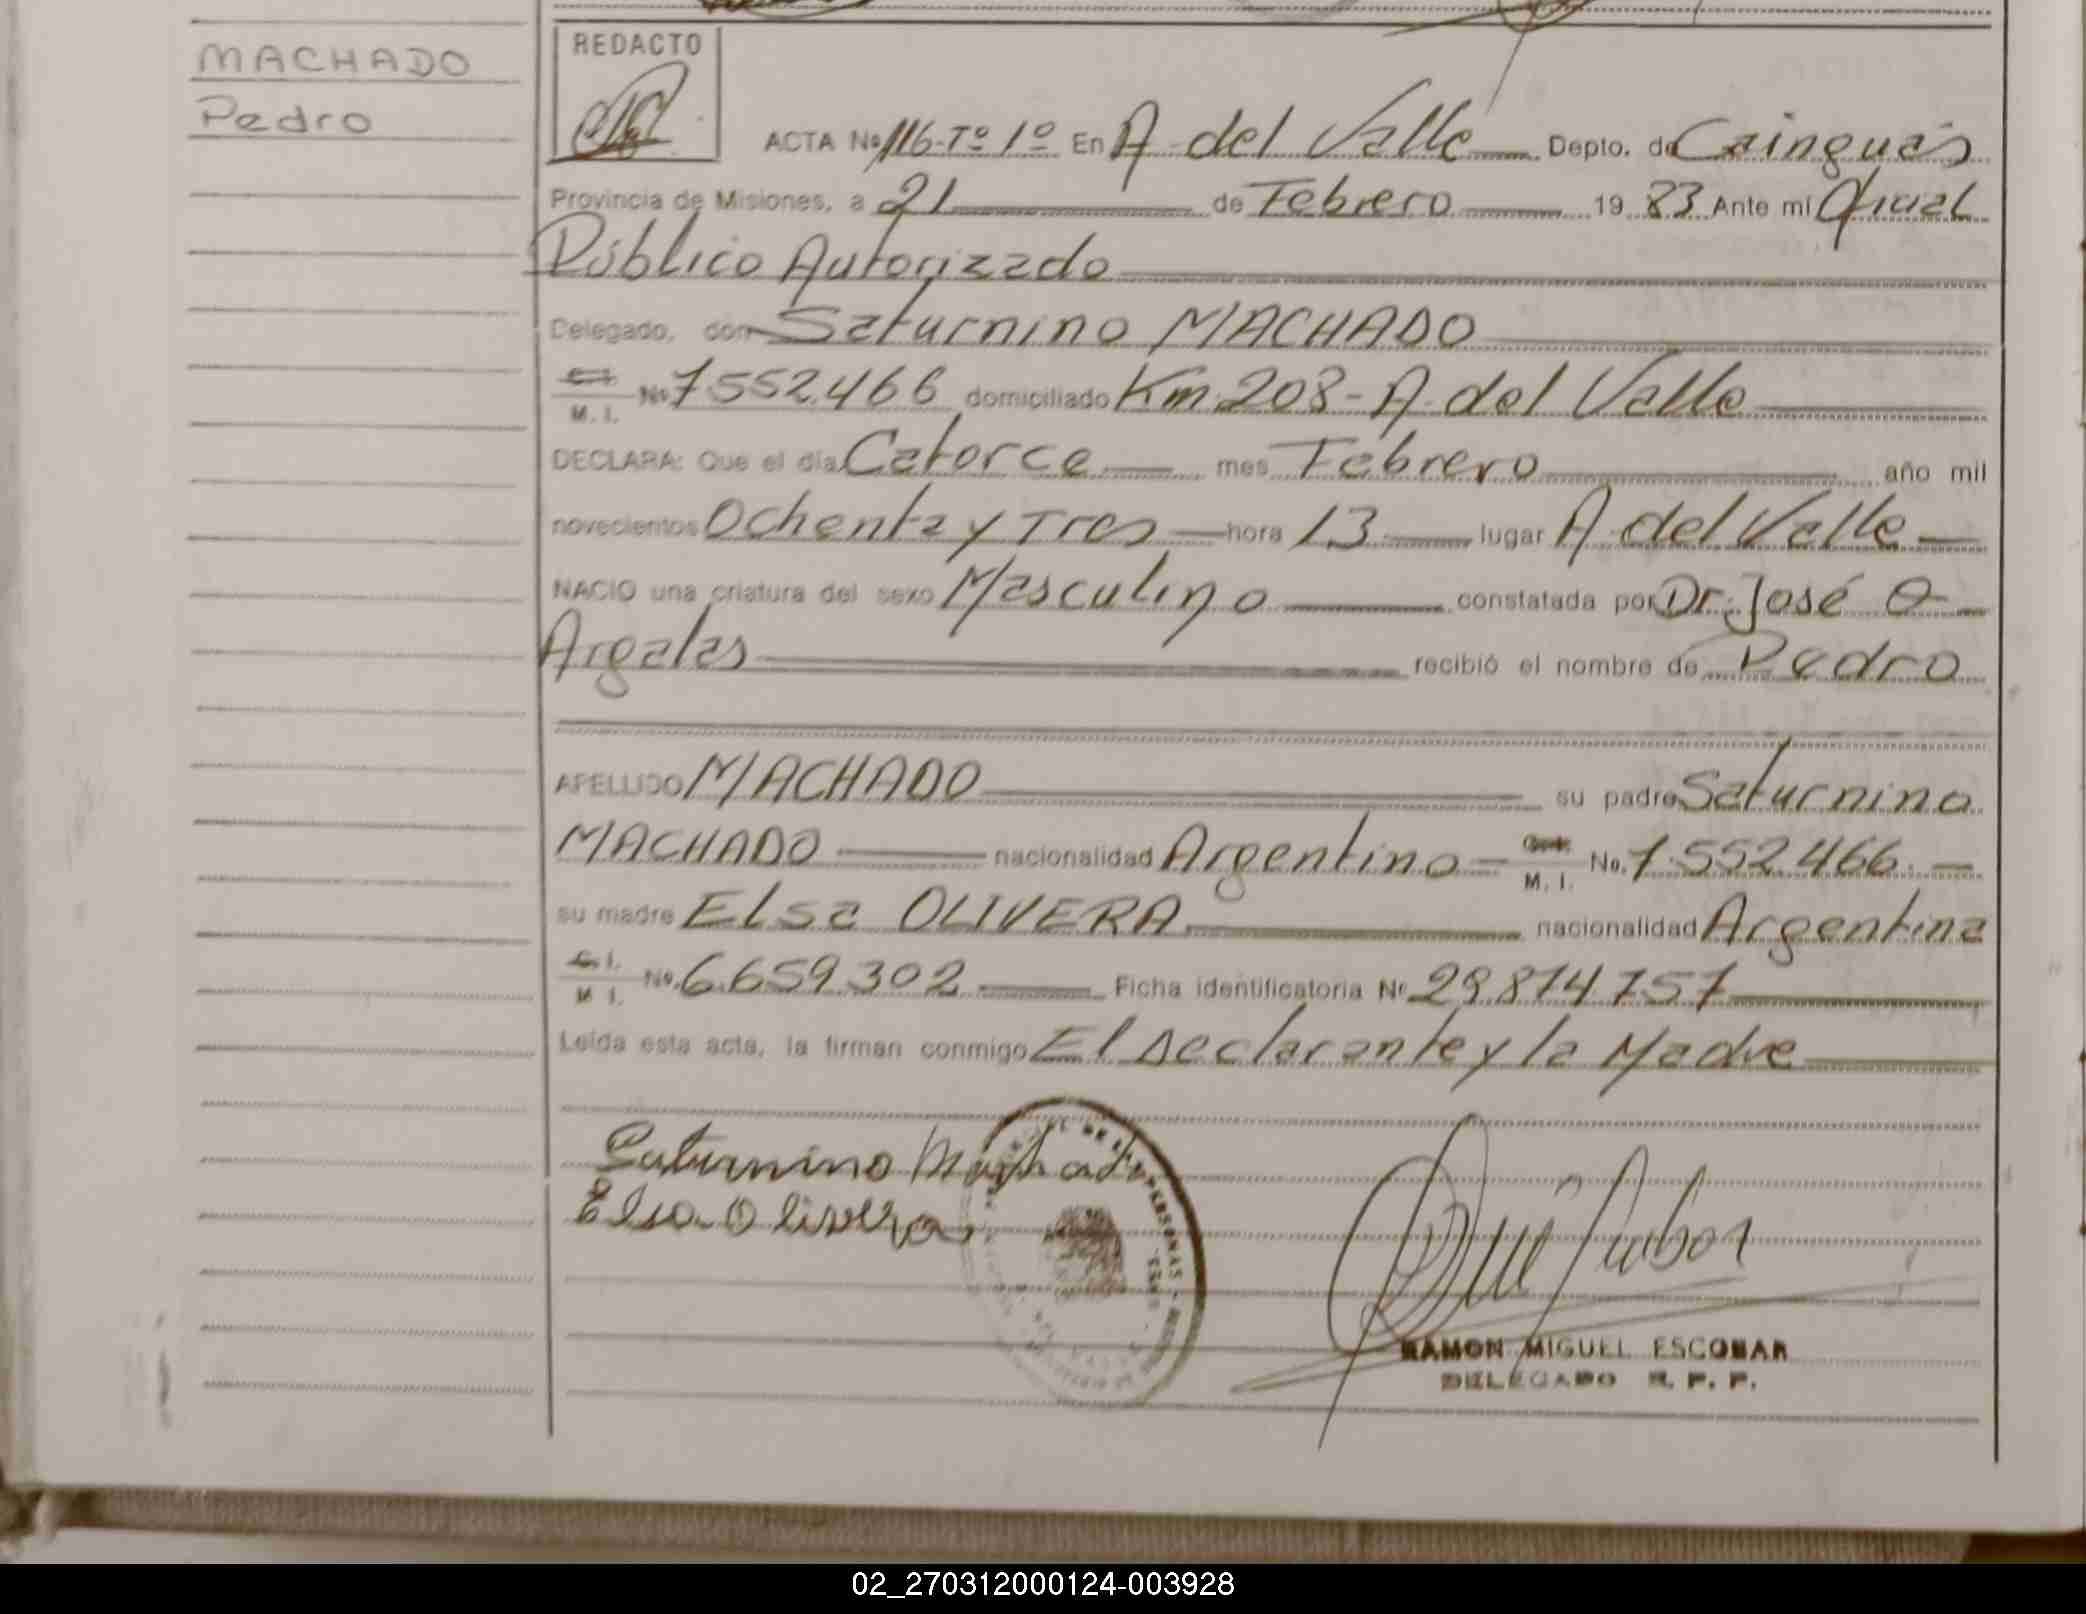 MACHADO
Pedro
REDACTO
ACTA No 116-Tº 1º En A. del Valle Depto. de Cainguás
Provincia de Misiones, a 21 de Febrero 19 83 Ante mí Oficial
Público Autorizado
Delegado, don Saturnino MACHADO
C.I. M. I. No 7.552.466 domiciliado Km. 208 - A. del Valle
DECLARA: Que el día Catorce mes Febrero año mil
novecientos Ochenta y Tres hora 13 lugar A. del Valle
NACIO una criatura del sexo Masculino constatada por Dr. José O
Argalas recibió el nombre de Pedro
APELLIDO MACHADO su padre Saturnino
MACHADO nacionalidad Argentino M. I. No. 7.552.466.
su madre Elsa OLIVERA nacionalidad Argentina
C. I. M I. No. 6.659.302 Ficha identificatoria Nº 29.874.757
Leída esta acta, la firman conmigo El Declarante y la Madre
Saturnino Machado
Elsa Olivera
RAMON MIGUEL ESCOBAR
DELEGADO R. P. P.
02_270312000124-003928